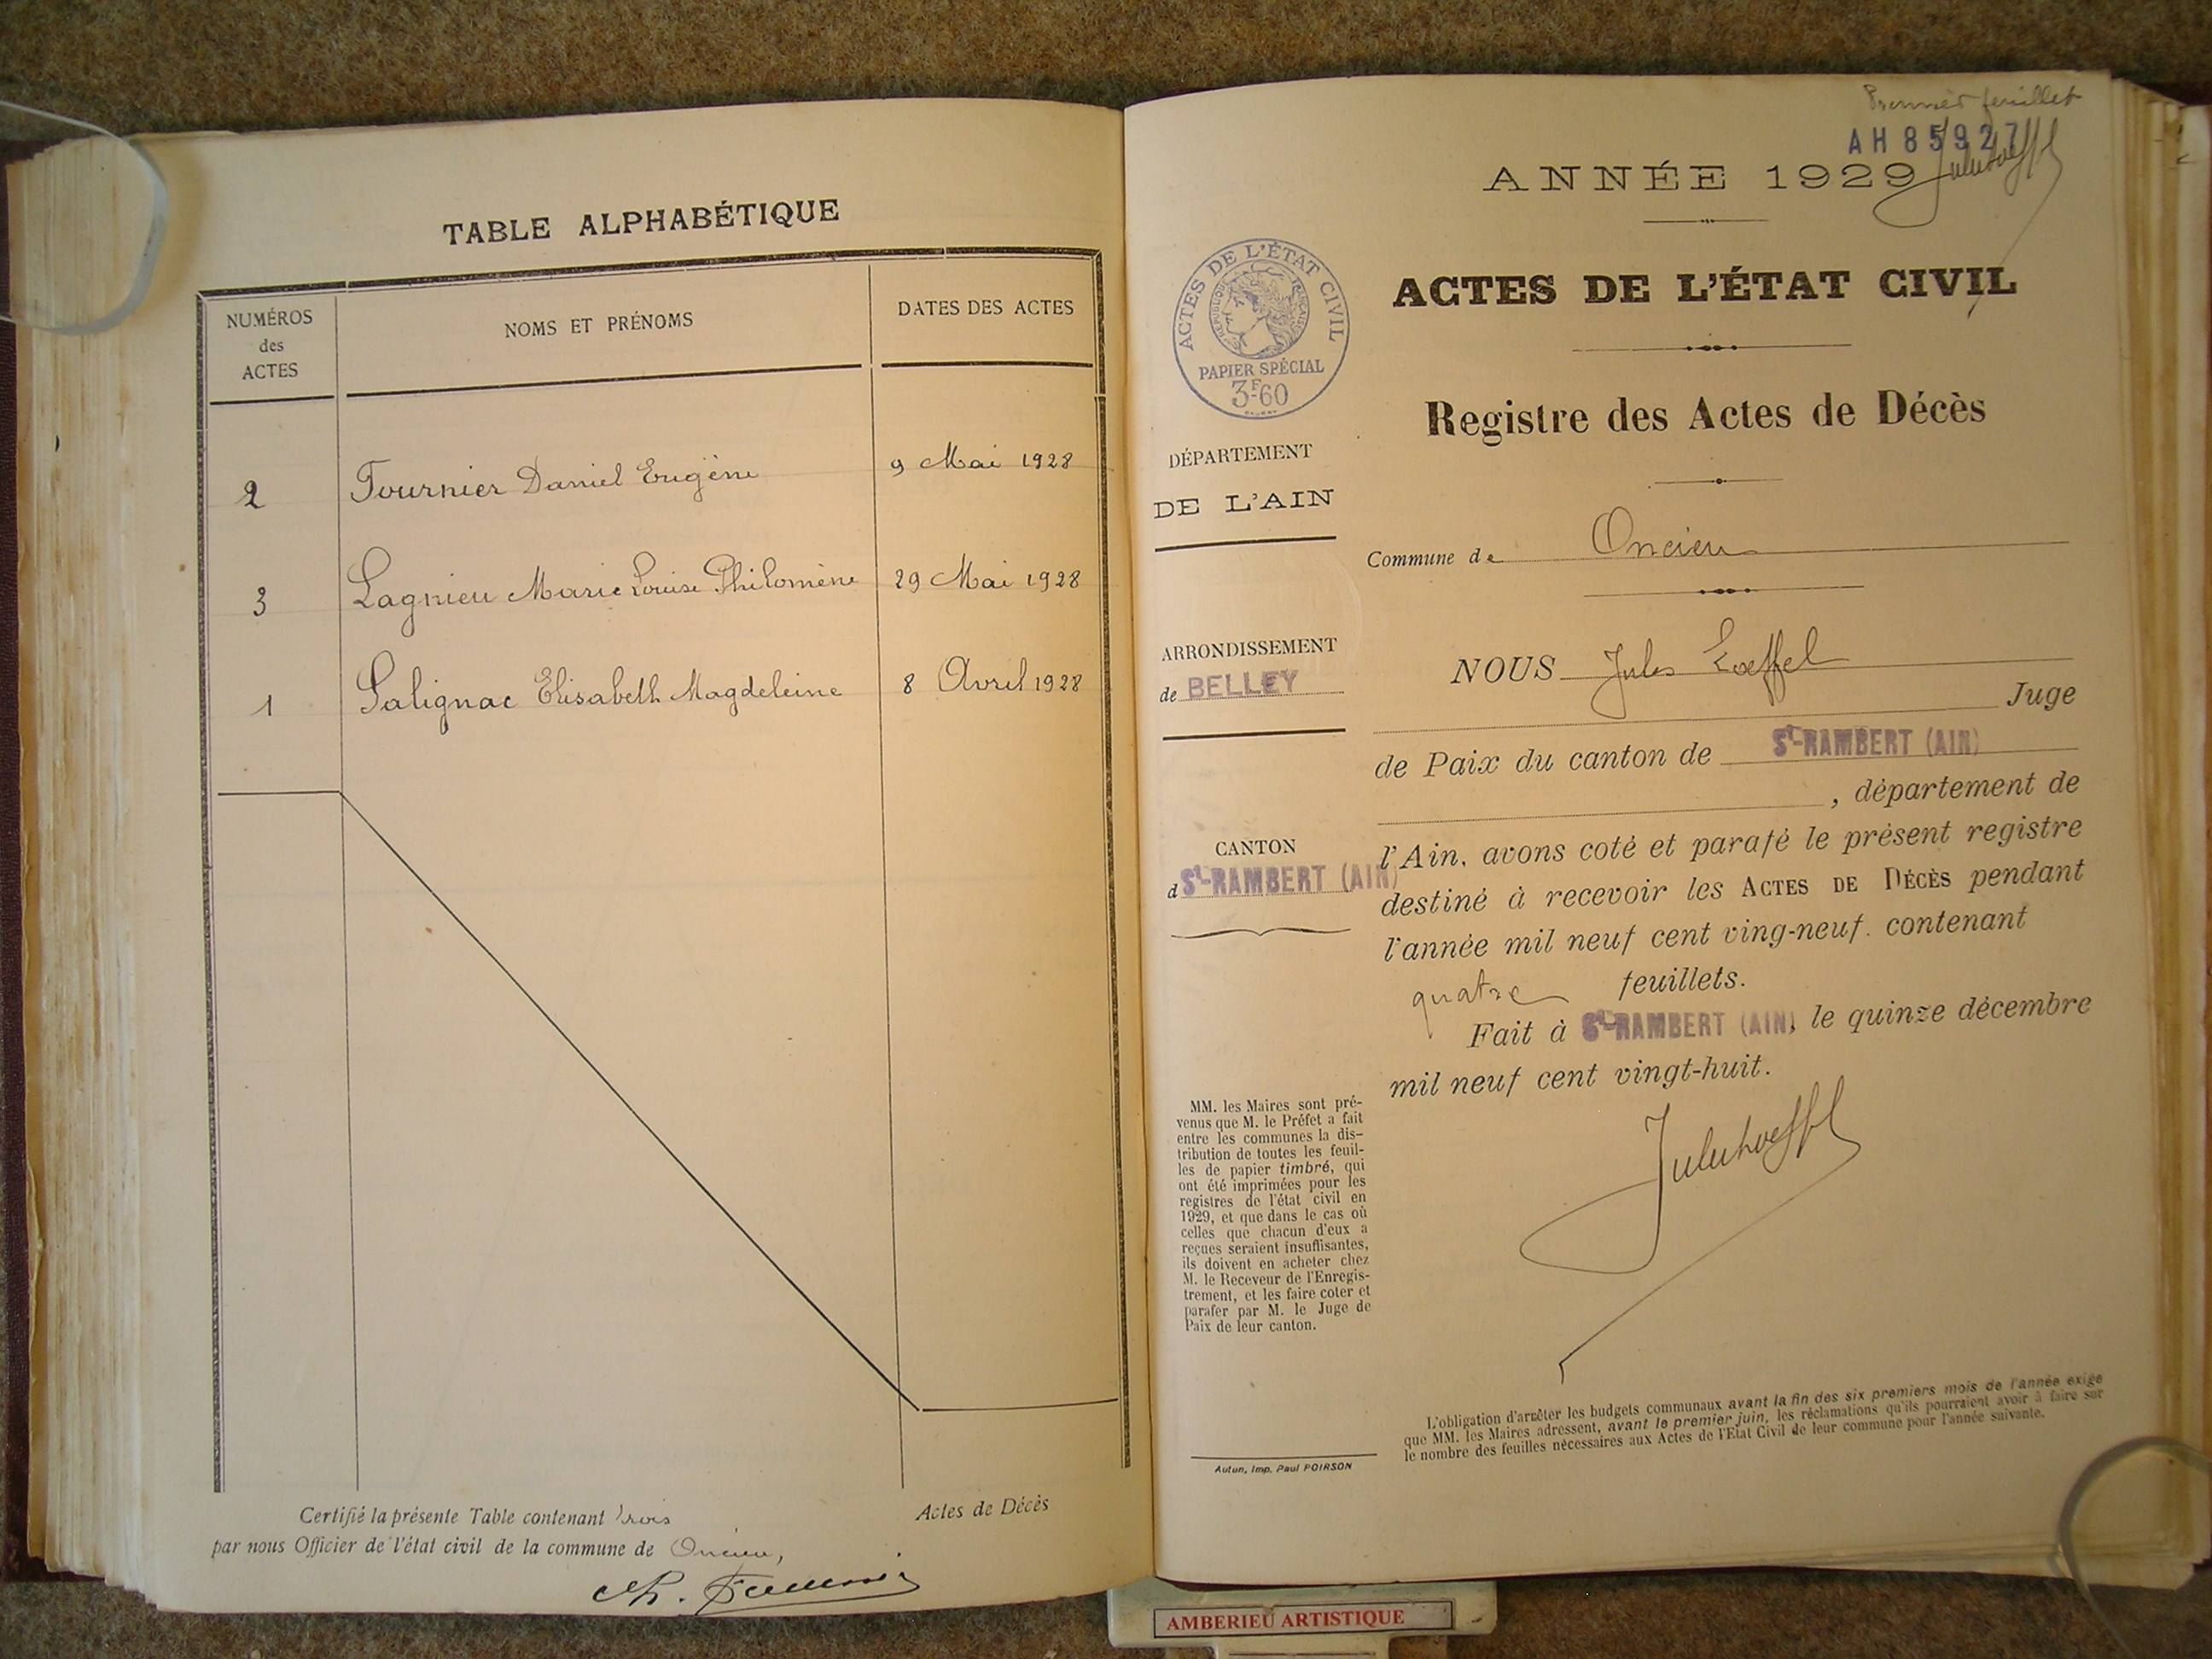 TABLE ALPHABÉTIQUE
NUMÉROS
des
ACTES
NOMS ET PRÉNOMS
DATES DES ACTES
2 Fournier Daniel Eugène 9 Mai 1928
3 Lagnieu Marie Louise Philomène 29 Mai 1928
1 Salignac Elisabeth Magdeleine 8 Avril 1928
Certifié la présente Table contenant trois Actes de Décès
par nous Officier de l'état civil de la commune de Oncieu,
Premier feuillet
AH 85927
ANNÉE 1929
ACTES DE L'ÉTAT CIVIL
RÉPUBLIQUE FRANÇAISE
PAPIER SPÉCIAL
3F-60
ACTES DE L'ÉTAT CIVIL
Registre des Actes de Décès
DÉPARTEMENT
DE L'AIN
Commune de Oncieu
ARRONDISSEMENT
de BELLEY
NOUS Jules Loeffel
Juge
de Paix du canton de St-RAMBERT (AIN)
, département de
CANTON
d St-RAMBERT (AIN)
l'Ain, avons coté et parafé le présent registre
destiné à recevoir les ACTES DE DÉCÈS pendant
l'année mil neuf cent ving-neuf. contenant
quatre feuillets.
Fait à St-RAMBERT (AIN), le quinze décembre
mil neuf cent vingt-huit.
MM. les Maires sont pré-
venus que M. le Préfet a fait
entre les communes la dis-
tribution de toutes les feuil-
les de papier timbré, qui
ont été imprimées pour les
registres de l'état civil en
1929, et que dans le cas où
celles que chacun d'eux a
reçues seraient insuffisantes,
ils doivent en acheter chez
M. le Receveur de l'Enregis-
trement, et les faire coter et
parafer par M. le Juge de
Paix de leur canton.
L'obligation d'arrêter les budgets communaux avant la fin des six premiers mois de l'année exige
que MM. les Maires adressent, avant le premier juin, les réclamations qu'ils pourraient avoir à faire sur
le nombre des feuilles nécessaires aux Actes de l'Etat Civil de leur commune pour l'année suivante.
Autun, Imp. Paul POIRSON
AMBERIEU ARTISTIQUE